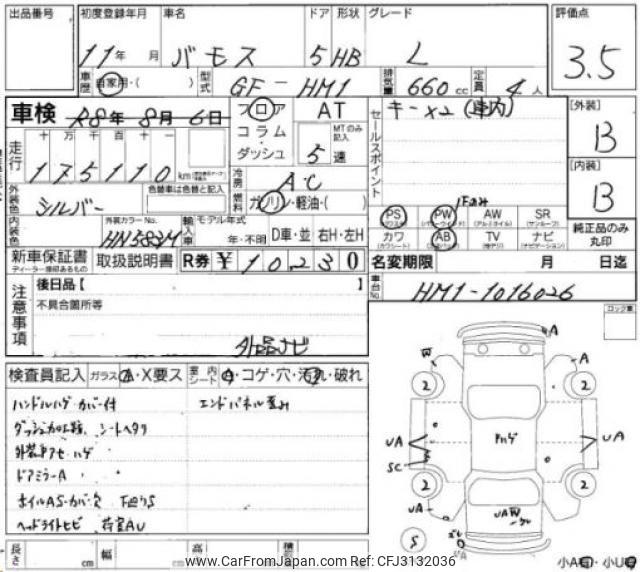 出品番号
初度登録年月 車名 ドア 形状 グレード
11年 月 バモス 5 HB L
車歴 自家用・( ) 型式 GF-HM1 排気量 660 cc 定員 4 人
評価点
3.5
車検 R8年 8月 6日
フロア
コラム・
ダッシュ
AT
MTのみ記入
5 速
セールスポイント
キー×2 (車内)
[外装]
B
[内装]
B
走行 十 万 千 百 十 一
175110 km
冷房 A・C
燃料 ガソリン・軽油・( )
外装色 シルバー 色替車は色替と記入
内装色 外装カラーNo.
輸入車 モデル年式
年・不明 D車・並 右H・左H
PS PW AW SR
カワ AB TV ナビ
純正品のみ
丸印
新車保証書
ディーラー捺印あるもの
取扱説明書 R券 ¥10230
名変期限 月 日迄
車台No. HM1-1016026
注意事項
後日品【 】
不具合箇所等
外品ナビ
ロック車
検査員記入 ガラス A・X要ス 室内シート コゲ・穴・汚れ・破れ
ハンドルハゲ・カバー付 エンドパネル歪み
シートヘタリ
ドアミラーA
ヘッドライトヒビ 荷室AU
A
W A
2 2
UA UA
SC
2 2
UA
S
UA
長さ cm 幅 cm 高 cm 積
www.CarFromJapan.com Ref: CFJ3132036